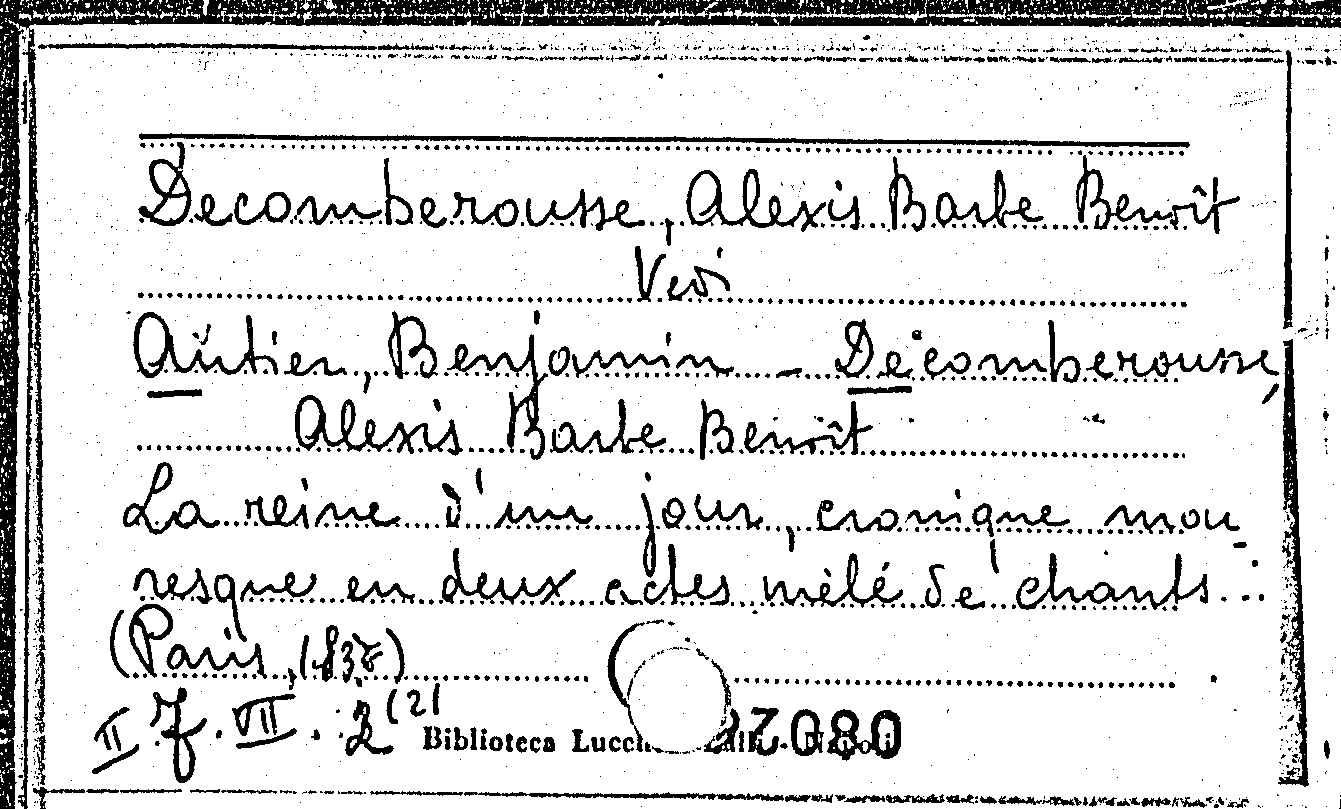 Decomberousse, Alexis Barbe Benoît
Vedi
Autier, Benjamin - Decomberousse,
Alexis Barbe Benoît
La reine d'un jour, cronique mou-
resque en deux actes mêlé de chants...
(Paris,
II J. VII. 2 (2)
Biblioteca